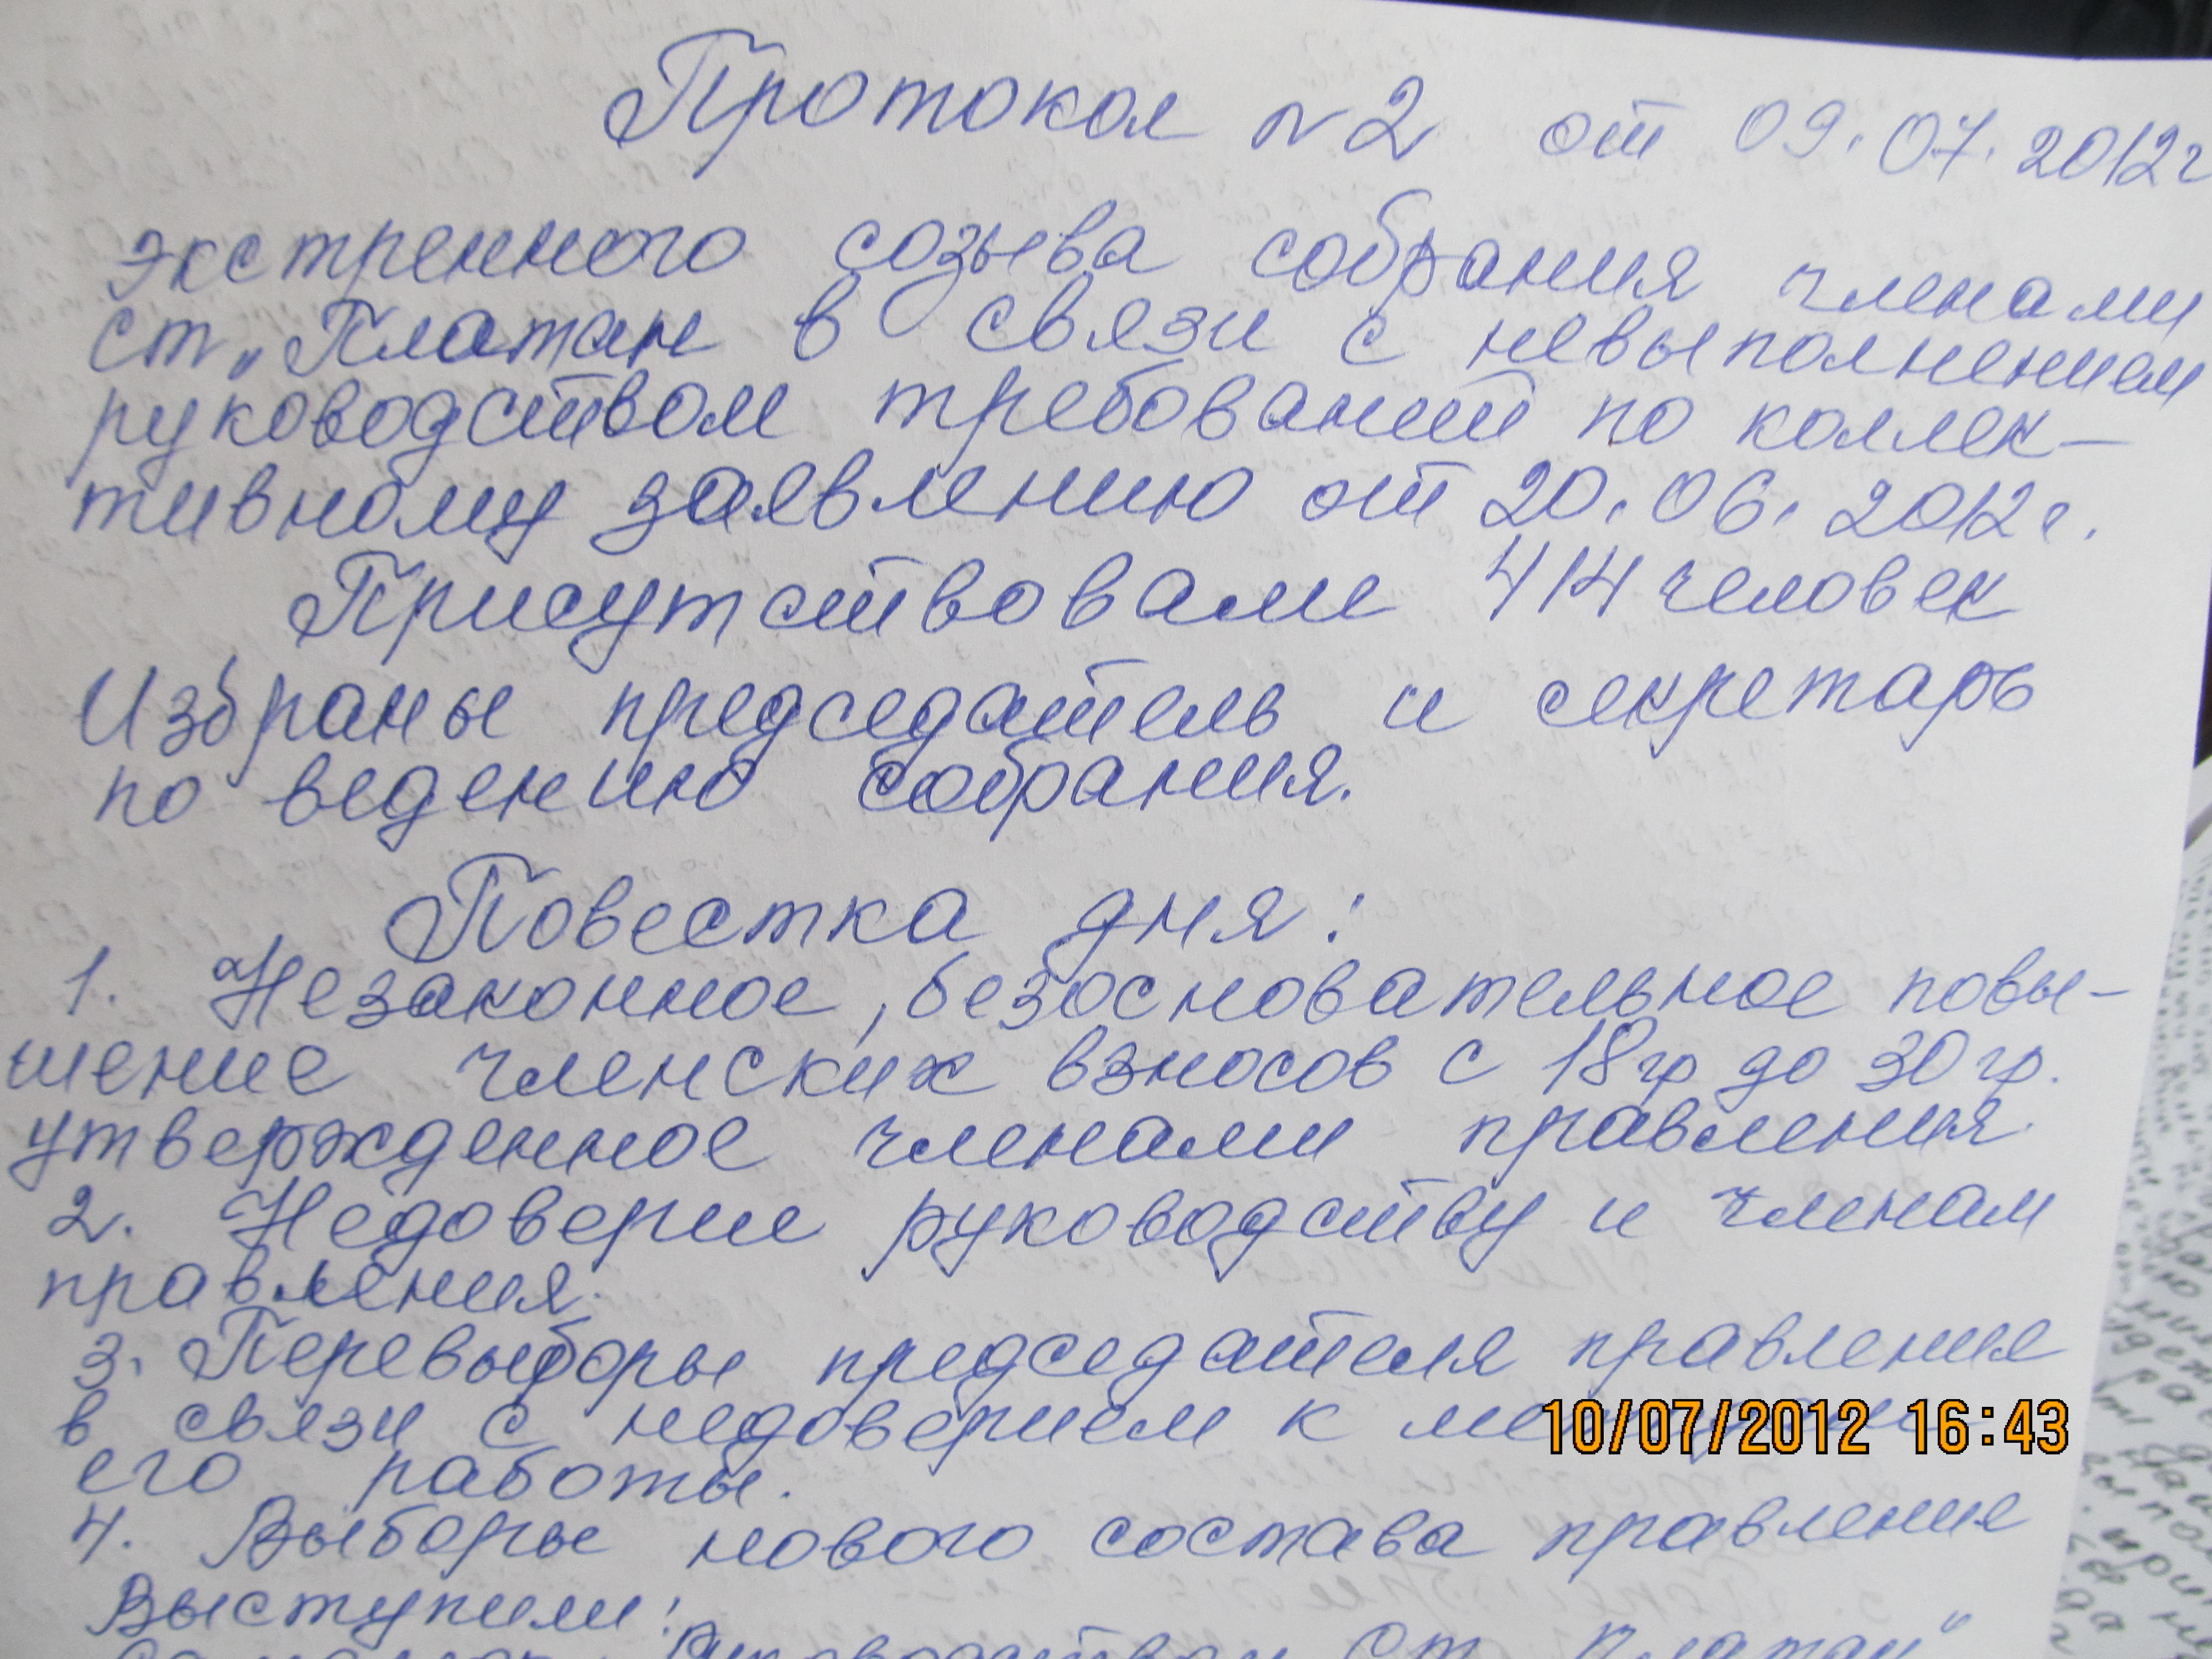 Протокол №2 от 09.07.2012г
экстренного созыва собрания членами
ст „Платан в связи с невыполнением
руководством требований по коллек-
тивному заявлению от 20.06.2012г.
Присутствовали 414 человек
Избраны председатель и секретарь
по ведению собрания.
Повестка дня:
1. Незаконное, безосновательное повы-
шение членских взносов с 18гр до 30гр.
утвержденное членами правления.
2. Недоверие руководству и членам
правления.
3. Перевыборы председателя правления
в связи с недоверием к
его работы.
10/07/2012 16:43
4. Выборы нового состава правления
Выступили:
руководством ст „Платан"